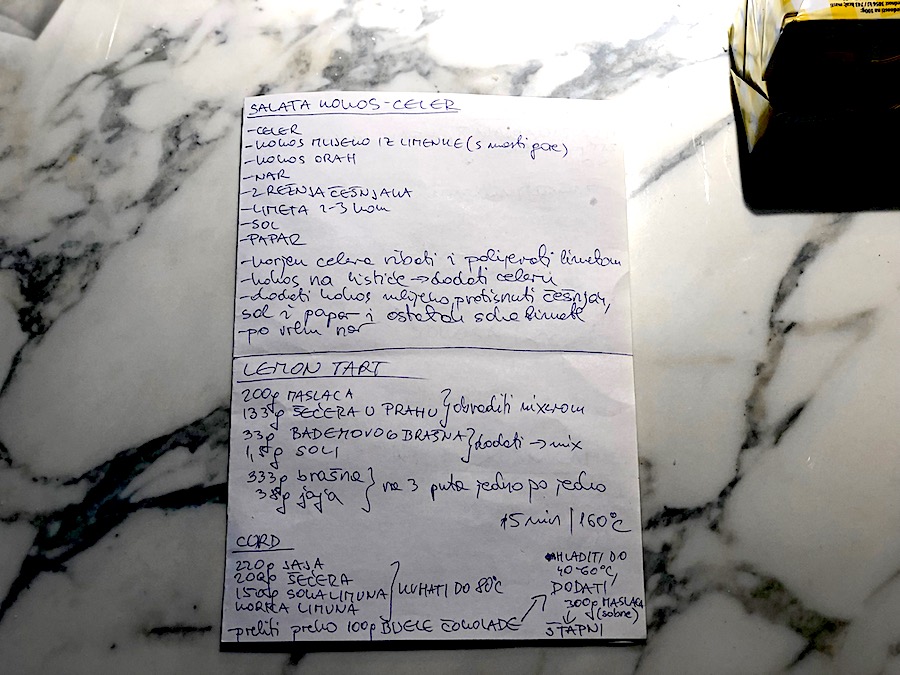 SALATA KOKOS-CELER
-CELER
-KOKOS MLIJEKO IZ LIMENKE (s masti gore)
-KOKOS ORAH
-NAR
-2 REŽNJA ČEŠNJAKA
-LIMETA 2-3 kom
-SOL
-PAPAR
-korjen celera ribati i polijevati limetom
-kokos na listiće → dodati celeru
-dodati kokos mlijeko, protisnuti češnjak,
sol i papar i ostatak soka limete
-po vrhu nar
LEMON TART
200g MASLACA
133g ŠEĆERA U PRAHU } obraditi mixerom
33g BADEMOVOG BRAŠNA
SOLI } dodati → mix
333g brašna
jaja } na 3 puta jedno po jedno
15 min | 160°C
CORD
220g JAJA
200g ŠEĆERA
150g SOKA LIMUNA
KORICA LIMUNA } KUHATI DO 80°C
preliti preko 100g BIJELE ČOKOLADE
HLADITI DO
40-60°C,
DODATI
300g MASLACA
(sobne)
ŠTAPNI